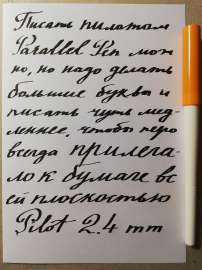 Писать пилотом
Parallel Pen мож
но, но надо делать
большие буквы и
писать чуть мед-
леннее, чтобы перо
всегда прилега-
ло к бумаге вс
ей плоскостью
Pilot 2.4 mm